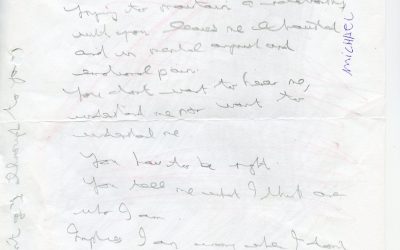 trying to maintain a relationship
with you leaves me exhausted
and in mental anguish and
emotional pain.
You don't want to hear me,
understand me nor want to
understand me
You have to be right.
You tell me what I think and
who I am.
I say when I don't
MICHAEL